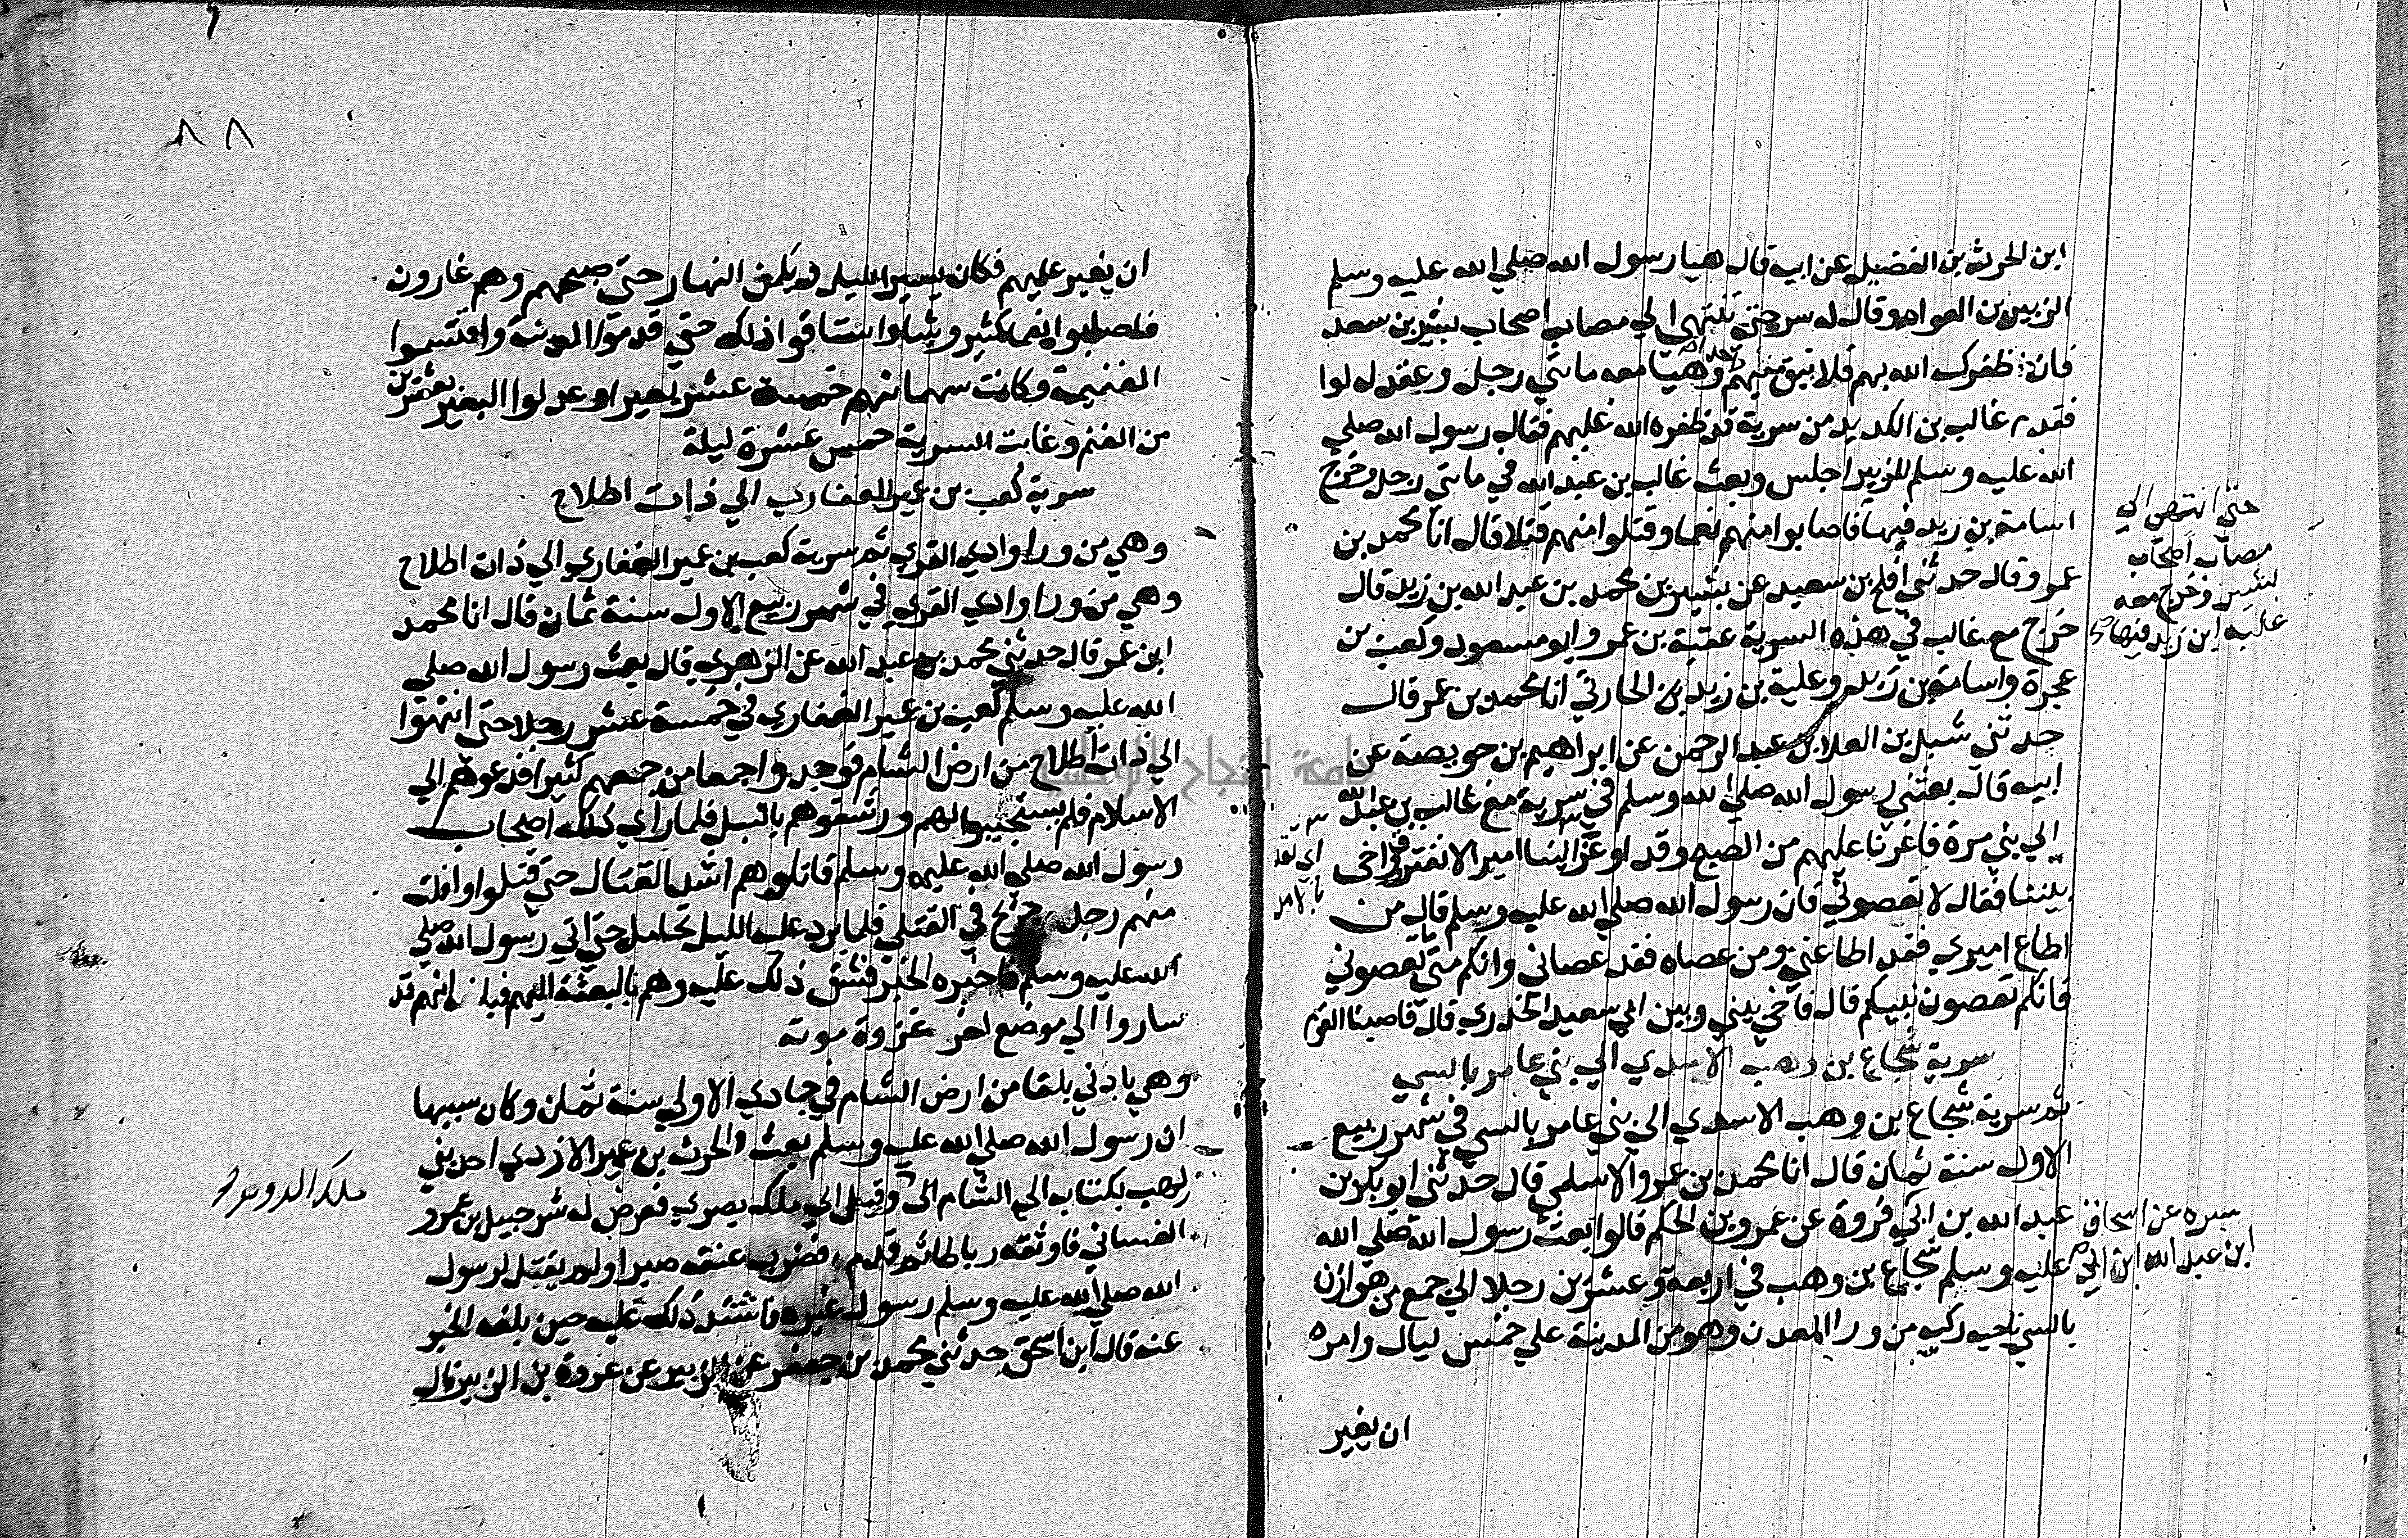 ابن الحرث بن الفضيل عن ابيه قال هيا رسول الله صلي الله عليه وسلم
الزبير بن العوام وقال له سر حتي تنتهي الي مصاب اصحاب بشير بن سعد
فان ظفرك الله بهم فلا تبق فيهم وهيا معه مائتي رجل وعقد له لوا
فقدم غالب بن الكديد من سرية قد ظفره الله عليهم فقال رسول الله صلي
الله عليه وسلم للزبير اجلس وبعث غالب بن عبد الله في مائتي رجل وخرج
اسامة بن زيد فيها فاصابوا منهم نعما وقتلوا منهم قتلا قال انا محمد بن
عمر وقال حدثني افلح بن سعيد عن بشير بن محمد بن عبد الله بن زيد قال
خرج مع غالب في هذه السرية عقبة بن عمرو ابو مسعود وكعب بن
عجرة واسامة بن زيد وعلية بن زيد بن الحارثي انا محمد بن عمر قال
حدثني شبل بن العلا بن عبد الرحمن عن ابراهيم بن حويصة عن
ابيه قال بعثني رسول الله صلي الله وسلم في سرية مع غالب بن عبد الله
الي بني مرة فاغرنا عليهم من الصبح وقد اوعز الينا امير الا نفترق واخى
بيننا فقال لا تعصوني فان رسول الله صلي الله عليه وسلم قال من
اطاع اميري فقد اطاعني ومن عصاه فقد عصاني وانكم متي تعصوني
فانكم تعصون نبيكم قال فاخي بيني وبين ابي سعيد الخدري قال فاصبنا القوم
سرية شجاع بن وهب الاسدي الي بني عامر بالسي
ثم سرية شجاع بن وهب الاسدي الي بني عامر بالسي في شهر ربيع
الاول سنة ثمان قال انا محمد بن عمرو الاسلمي قال حدثني ابو بكر بن
عبد الله بن ابي فروة عن عمرو بن الحكم قالوا بعث رسول الله صلي الله
عليه وسلم شجاع بن وهب في اربعة وعشرين رجلا الي جمع من هوازن
بالسي ناحيه ركبه من ورا المعدن وهو من المدينة علي خمس ليال وامره
ان يغير
حتى انتهى الي
مصاب اصحاب
بشير وخرج معه
علبه ابن زيد فيها
اي نفد
بالامر
سبره عن اسحاق
ابن عبد الله ابن ابي
٨٨
ان يغير عليهم فكان يسير الليل ويكمن النهار حتي صبحهم وهم غارون
فاصابوا نعما كثير وشاوا ستاقوا ذلك حتي قدموا المدينة واقتسموا
الغنيمة وكانت سهمانهم خمسة عشر بعيرا وعدلوا البعير بعشرين
من الغنم وغابت السرية خمس عشرة ليلة
سرية كعب بن عمير الغفاري الي ذات اطلاح
وهي من ورا وادي القري ثم سرية كعب بن عمير الغفاري الي ذات اطلاح
وهي من ورا وادي القري في شهر ربيع الاول سنة ثمان قال انا محمد
ابن عمر قال حدثني محمد بن عبد الله عن الزهري قال بعث رسول الله صلي
الله عليه وسلم كعب بن عمير الغفاري في خمسة عشر رجلا حتي انتهوا
الي ذات اطلاح من ارض الشام فوجدوا جمعا من جمعهم كثيرا فدعوهم الي
الاسلام فلم يستجيبوا لهم ورشقوهم بالنبل فلما راي ذلك اصحاب
رسول الله صلي الله عليه وسلم قاتلوهم اشد القتال حتي قتلوا وافلت
منهم رجل جريح في القتلي فلما برد عليه الليل تحامل حتي اتي رسول الله صلي
الله عليه وسلم فاخبره الخبر فشق ذلك عليه وهم بالبعثة اليهم فبلغه انهم قد
ساروا الي موضع اخر غزوة موته
وهي بادني بلقا من ارض الشام في جمادي الاولي سنة ثمان وكان سببها
ان رسول الله صلي الله عليه وسلم بعث الحرث بن عمير الازدي احد بني
لهب بكتاب الي الشام الي وقيل الي ملك بصري فعرض له شرحبيل بن عمرو
الغساني فاوثقه رباطا ثم قدم فضرب عنقه صبرا ولم يقتل لرسول
الله صلي الله عليه وسلم رسول غيره فاشتد ذلك عليه حين بلغه الخبر
عنه قال ابن اسحق حدثني محمد بن جعفر عن الزبير عن عروة بن الزبير قال
ملك الروم
جامعة النجاح الوطنية